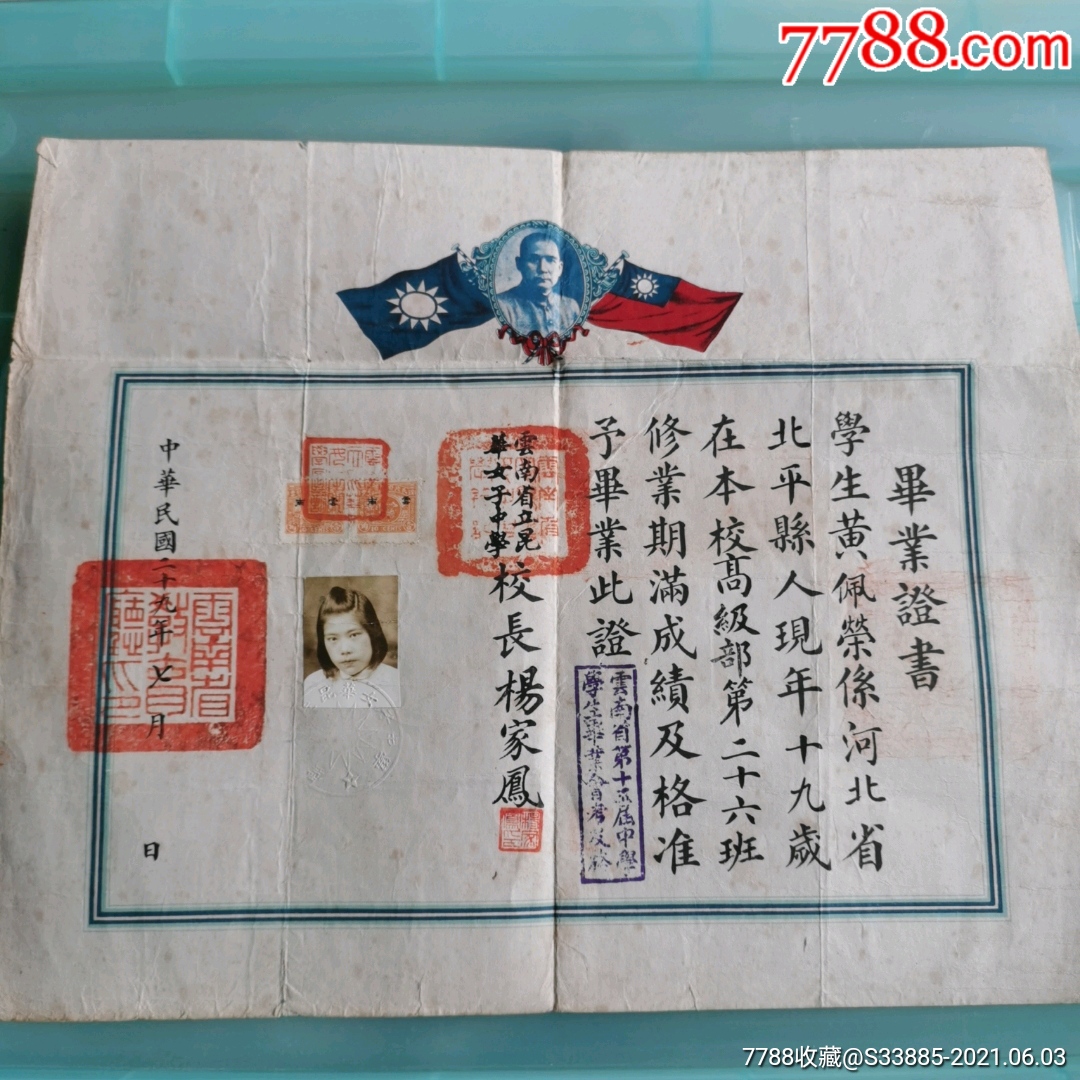 7788.com
畢業證書
學生黃佩榮係河北省
北平縣人現年十九歲
在本校高級部第二十六班
修業期滿成績及格准
予畢業此證
雲南省第十五屆中學
學生畢業會考及格
雲南省立昆
華女子中學
校長楊家鳳
中華民國二十九年七月 日
雲南省
教育
廳之印
7788收藏@S33885-2021.06.03